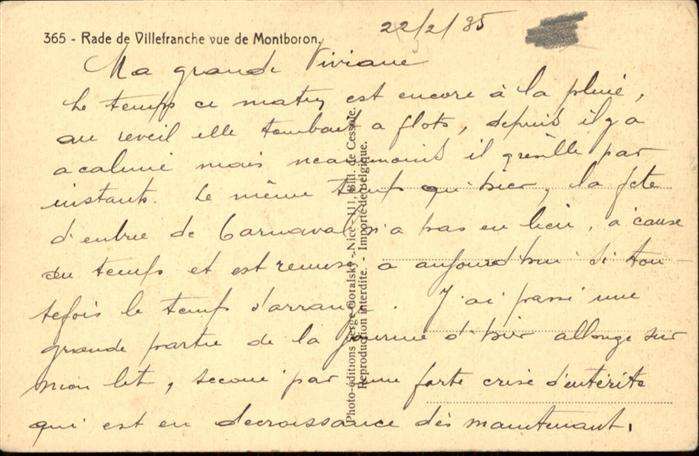 365 - Rade de Villefranche vue de Montboron.
22/2/35
Ma grande Viviane
Le temps ce matin est encore à la pluie,
au reveil elle tombait a flots, depuis il y a
acalmie mais neanmoins il grêsille par
instants. Le même temps qu'hier, la fete
d'entrée de Carnaval n'a pas eu lieu, a cause
du temps et est remise a aujourd'hui si tou-
tefois le temps s'arrange. J'ai passé une
grande partie de la journée d'hier allongé sur
mon lit, secoué par une forte crise d'entérite
qui est en decroissance dès maintenant.
Photo-éditions Serge Goralsky - Nice - 111, Bld. de Cessole.
Reproduction interdite. - Importé de Belgique.